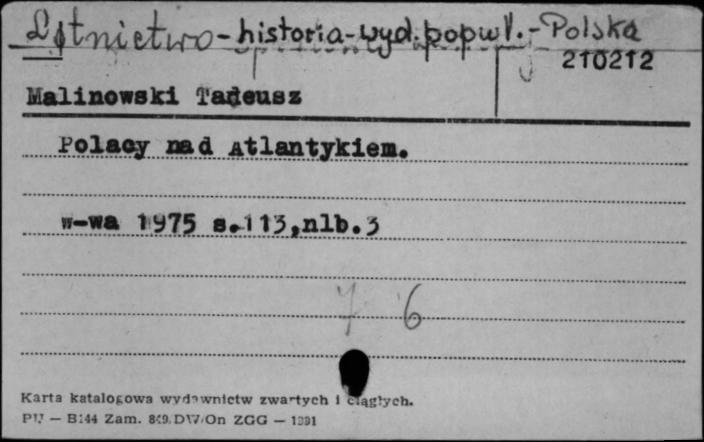 Lotnictwo - historia - wyd. popul. - Polska
210212
Malinowski Tadeusz
Polacy nad Atlantykiem.
W-wa 1975 s.113,nlb.3
7 6
Karta katalogowa wydawnictw zwartych i ciągłych.
PU — B144 Zam. 849/DW/On ZGG — 1391